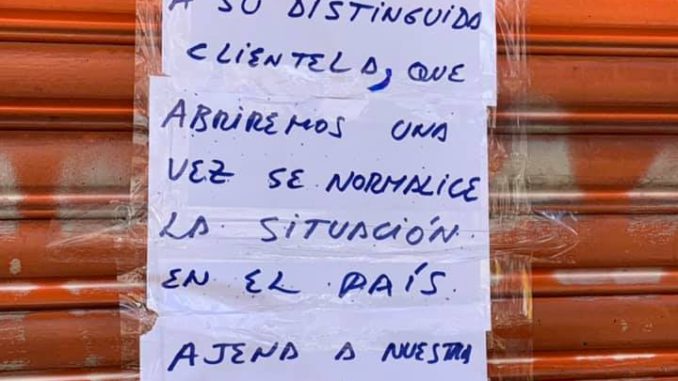 A SU DISTINGUIDA
CLIENTELA, QUE
ABRIREMOS UNA
VEZ SE NORMALICE
LA SITUACIÓN
EN EL PAÍS.
AJENA A NUESTRA